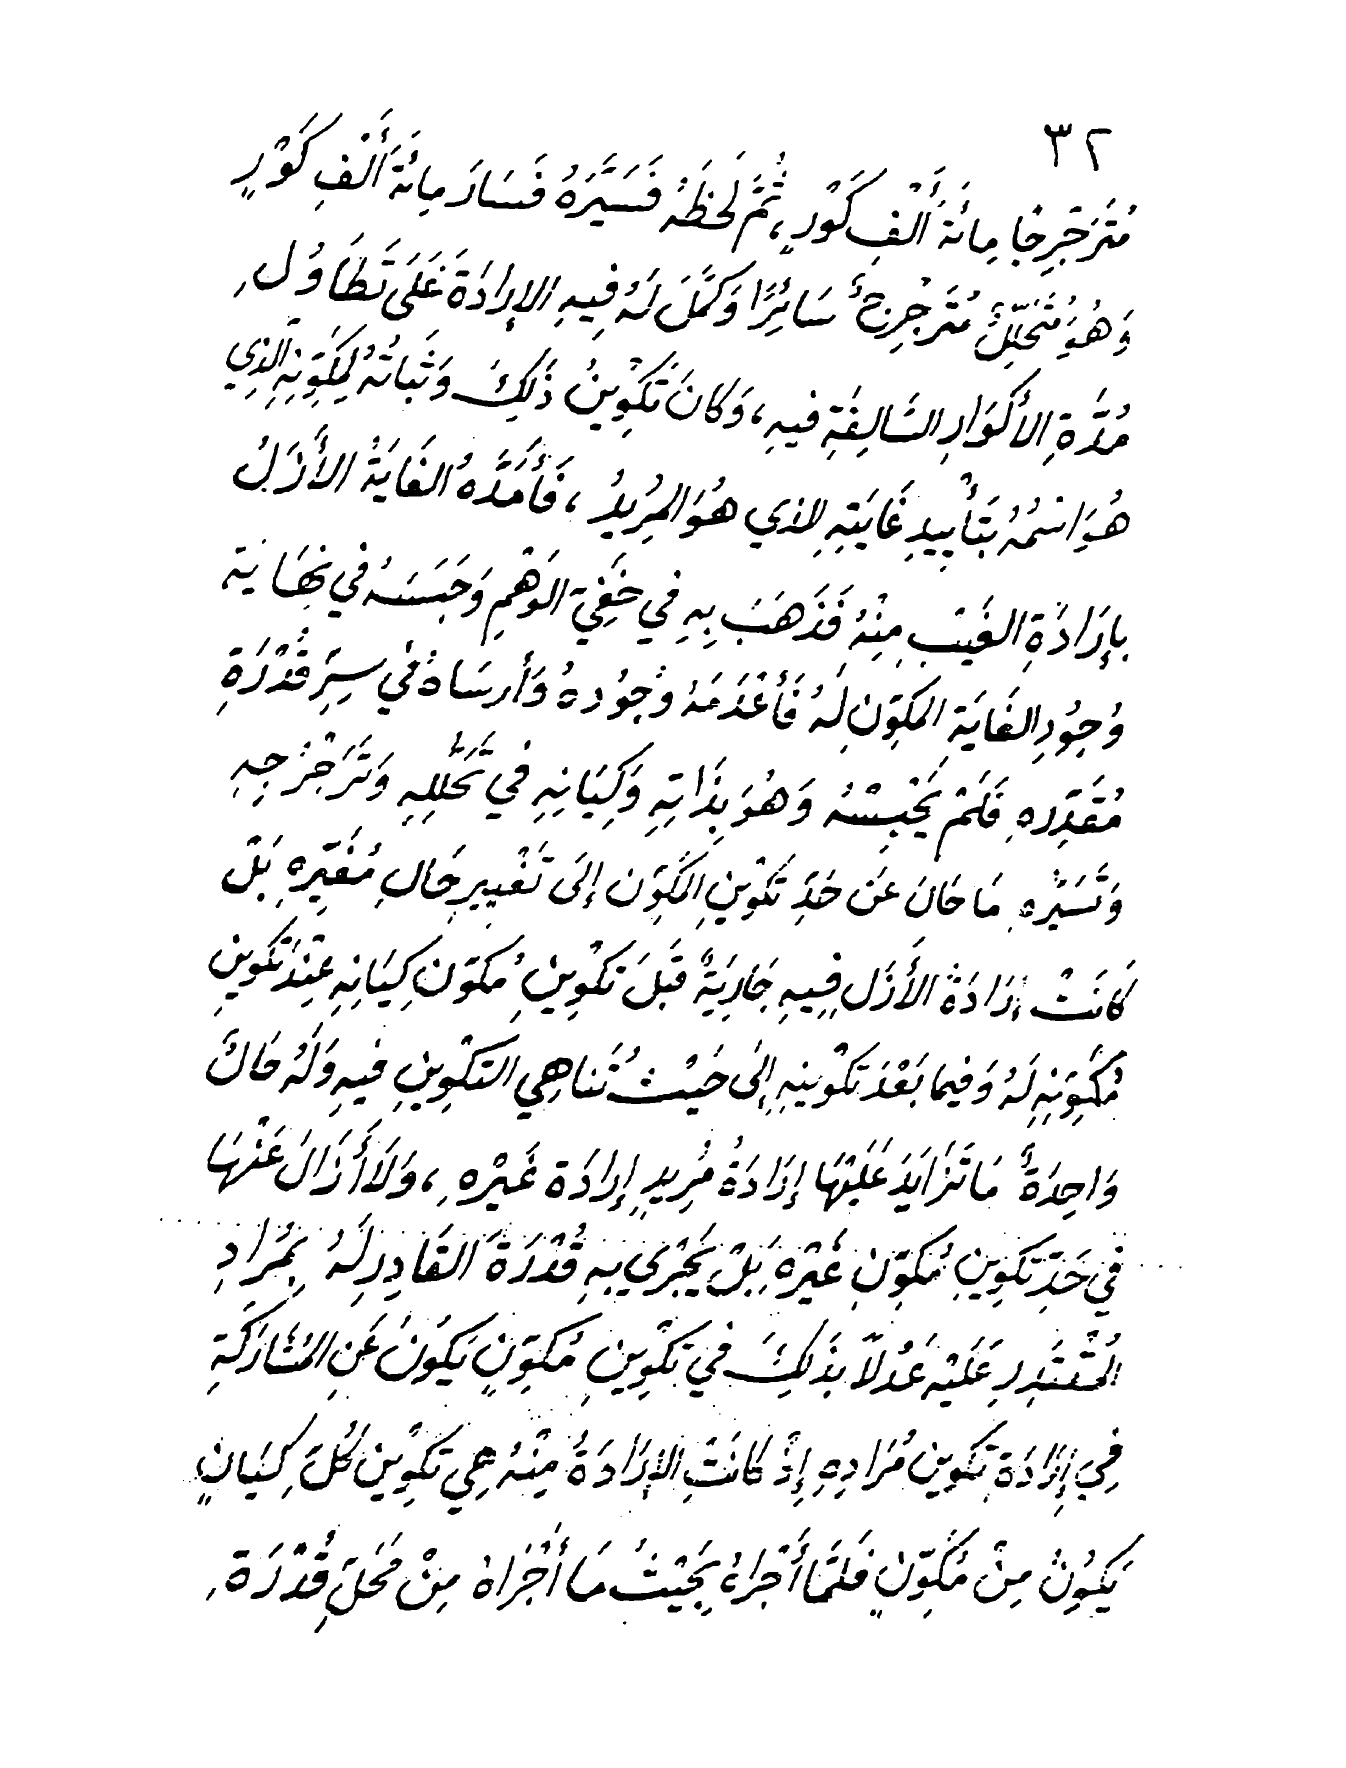 ٣٢
مُتَرَجْرِجًا مِائَةَ أَلْفِ كَوْرٍ، ثُمَّ لَحَظَهُ فَسَيَّرَهُ فَسَارَ مِائَةَ أَلْفِ كَوْرٍ
وَهُوَ مُتَحَلِّلٌ مُتَرَجْرِجٌ سَائِرًا وَكَمَّلَ لَهُ فِيهِ الإِرَادَةَ عَلَى تَطَاوُلِ
مُدَّةِ الأَكْوَارِ السَّالِفَةِ فيهِ، وَكَانَ تَكْوِينُ ذَلِكَ وَثَبَاتُهُ لِمُكَوِّنِهِ الَّذِي
هُوَ اسْمُهُ بِتَأْيِيدِ غَايَتِهِ للذي هُوَ المُرِيدُ، فَأَمَدَّهُ الغَايَةُ الأَزَلُ
بِإِرَادَةِ الغَيْبِ مِنْهُ فَذَهَبَ بِهِ فِي خَفِيِّ الوَهْمِ وَحَبَسَهُ في نِهَايَةِ
وُجُودِ الغَايَةِ المُكَوِّنِ لَهُ فَأَعْدَمَهُ وُجُودهُ وَأَرسَاهُ في سِرِّ قُدْرَةِ
مُقَدِّرِهِ فَلَمْ يَحْبِسْهُ وَهُوَ بِذَاتِهِ وَكِيَانِهِ فِي تَحَلُّلِهِ وَتَرَجْرُجِهِ
وَتَسَيُّرِهِ مَا حَانَ عَن حَدِّ تَكْوِينِ المُكَوِّن إِلَى تَغْيِيرِ حَالِ مُغَيِّرِهِ بَلْ
كَانَتْ إرَادَةُ الأَزَلِ فِيهِ جَارِيَةٌ قَبْلَ تَكْوِينِ مُكَوّنِ كِيَانِهِ عِنْدَ تَكْوِينِ
مُكَوِّنِهِ لَهُ وَفيما بَعْدَ تَكْوينِهِ إِلَى حَيْثُ تَناهِي التَكْوِينِ فيهِ وَلَهُ حَالٌ
وَاحِدَةٌ مَا تَزَايَدَ عَلَيْهَا إِرَادَةُ مُرِيدٍ إِرادَة غَيْرِهِ، وَلَا أَزَالَ عَنْهَا
في حَدِّ تَكْوِينِ مُكَوِّنٍ غَيْرِهِ بَلْ يَجْرِي بِهِ قُدْرَةَ القَادِرِ لَهُ بِمُرَادِ
المُقْتَدِرِ عَلَيْهِ عَدْلاً بِذَلِكَ في تَكْوِينِ مُكَوِّنٍ يَكُونُ عَنِ المُشَارَكَةِ
فِي إِرَادَةِ تَكْوِينِ مُرَادِهِ إِذْ كَانَتِ الإِرَادَةُ مِنْهُ هِيَ تَكْوِينَ كُلِّ كِيَانٍ
يَكُونُ مِنْ مُكَوِّنٍ فَلَمَّا أَجْرَاهُ بِحَيْثُ مَا أَجْرَاهُ مِنْ مَحَلِّ قُدْرَةِ